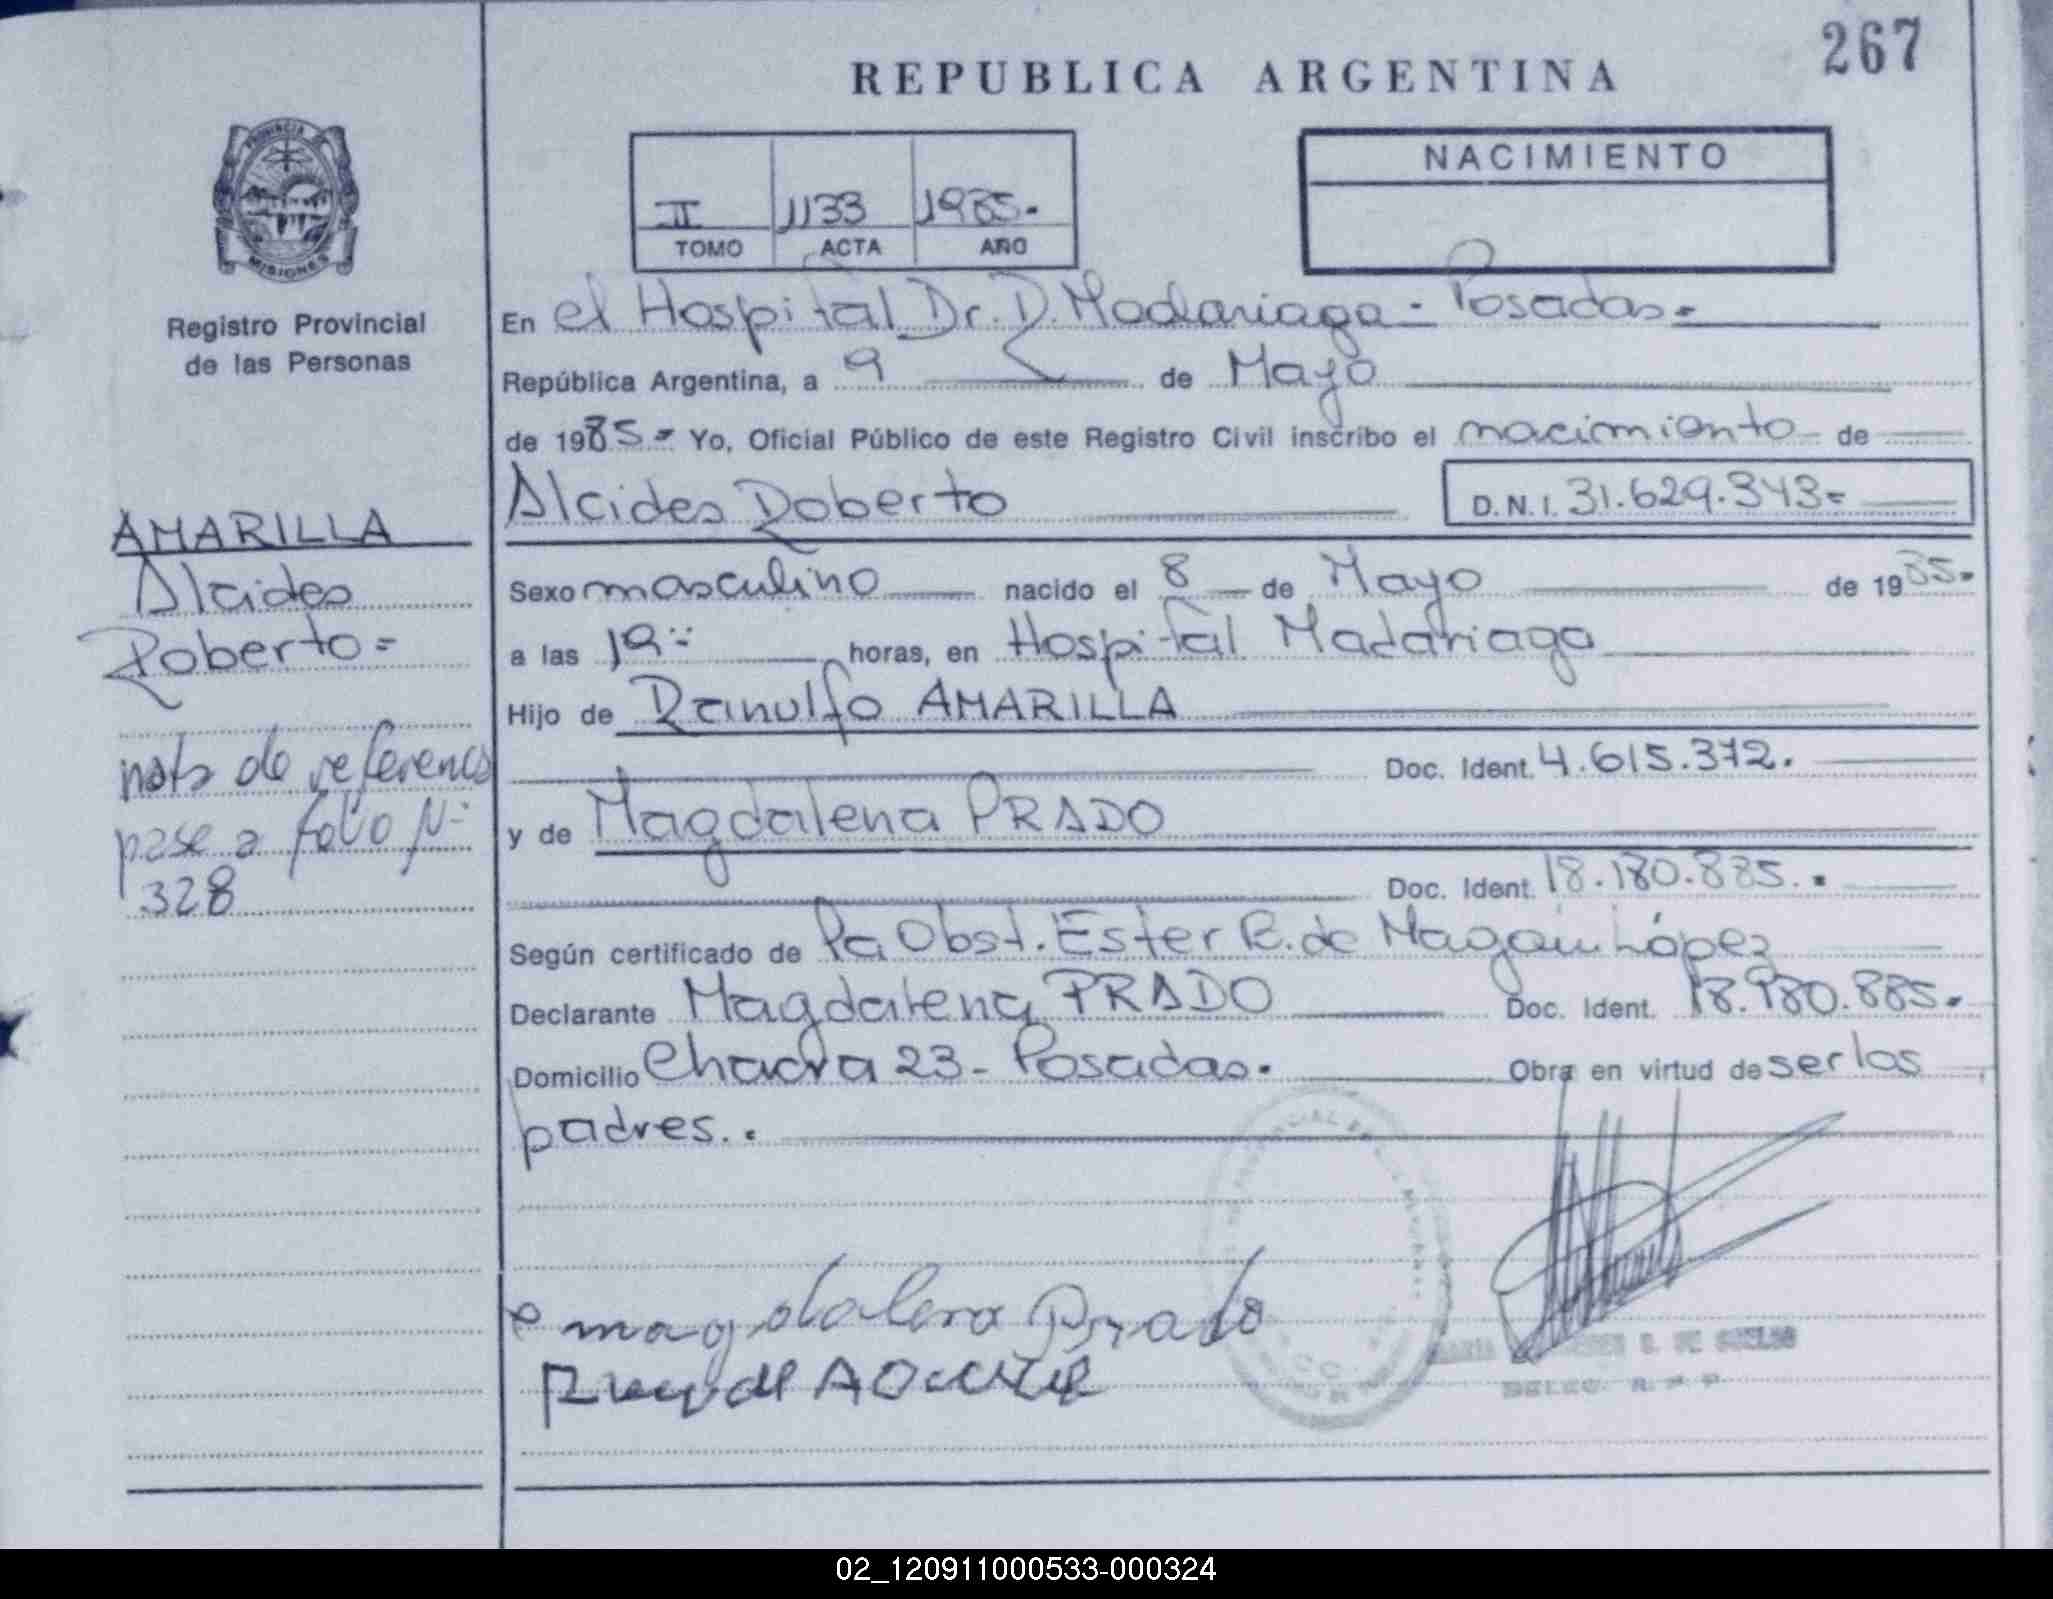 267
REPUBLICA ARGENTINA
NACIMIENTO
II 1133 1985.
TOMO ACTA AÑO
PROVINCIA DE
MISIONES
Registro Provincial
de las Personas
AMARILLA
Alcides
Roberto=
nota de referencia
pase a folio Nº
328
En el Hospital Dr. D. Madariaga - Posadas.
República Argentina, a 9 de Mayo
de 1985.- Yo, Oficial Público de este Registro Civil inscribo el nacimiento de
Alcides Roberto D.N.I. 31.629.343=
Sexo masculino nacido el 8 de Mayo de 1985.
a las 19:- horas, en Hospital Madariaga
Hijo de Ranulfo AMARILLA
Doc. Ident. 4.615.372.
y de Magdalena PRADO
Doc. Ident. 18.180.885..
Según certificado de la Obst. Ester R. de López
Declarante Magdalena PRADO Doc. Ident. 18.180.885.
Domicilio Chacra 23 - Posadas. Obra en virtud de ser los
padres..
magdalena Prado
DELEG. R. P. P.
02_120911000533-000324